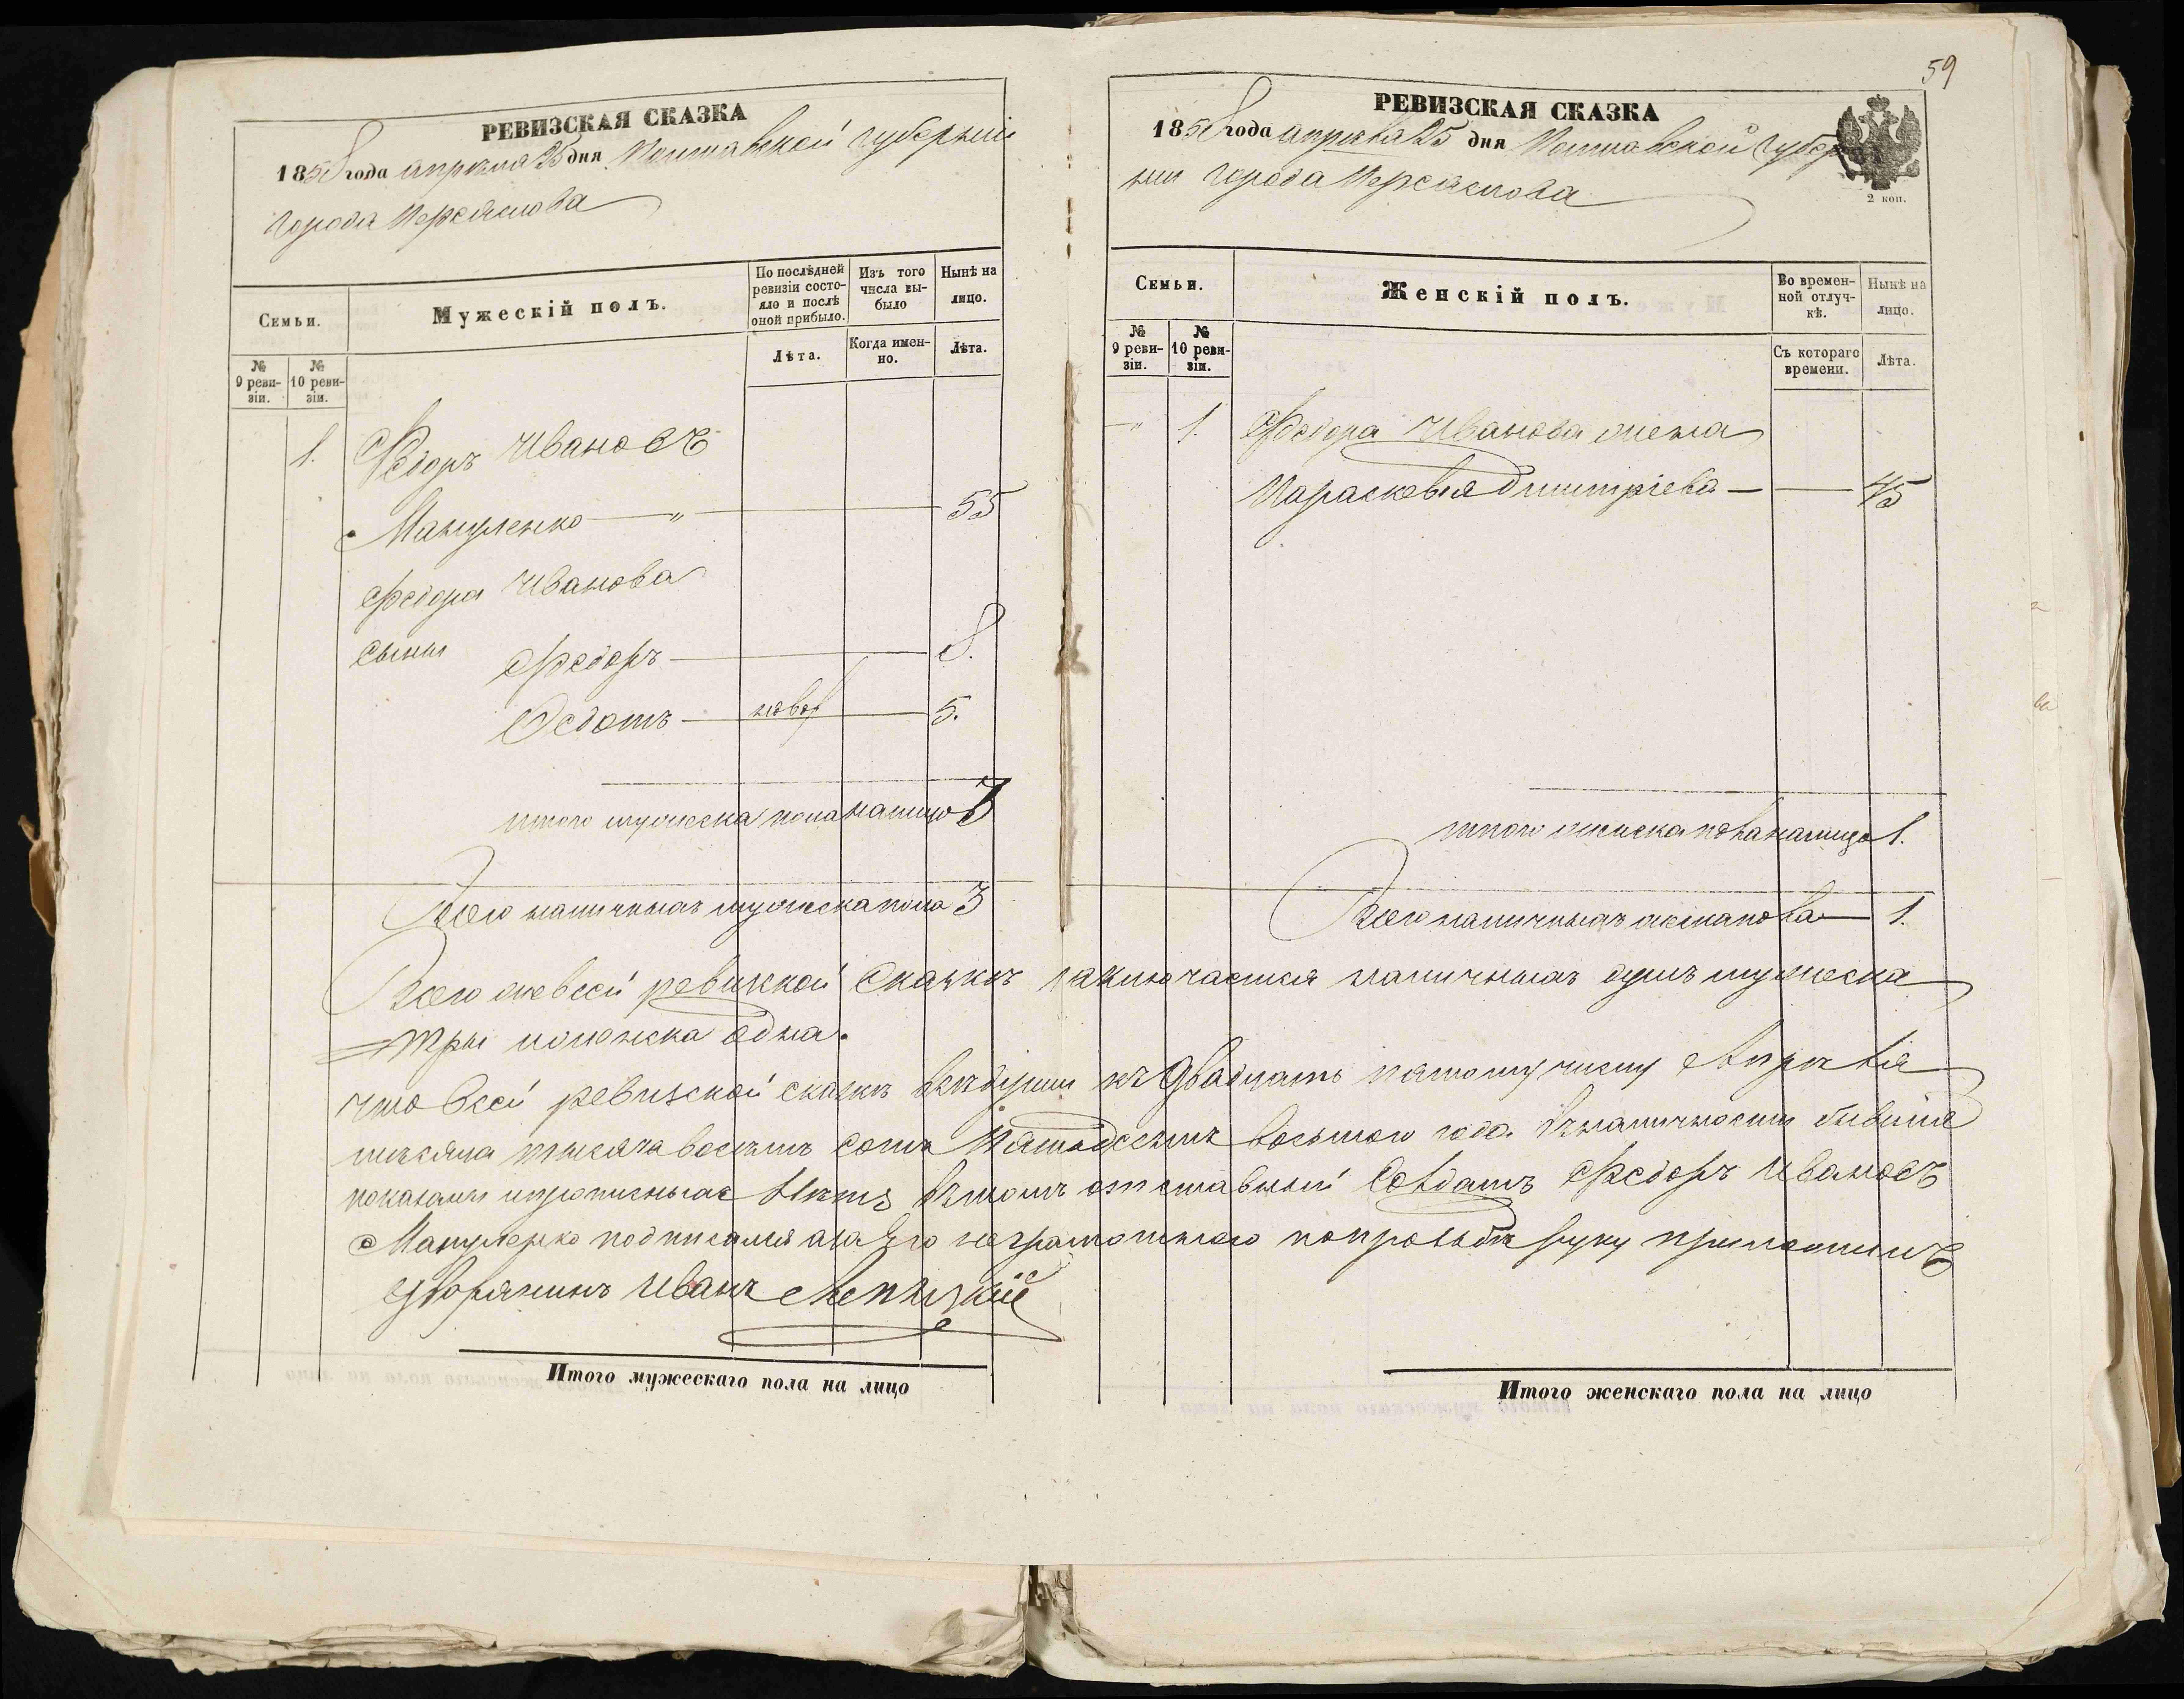 59
РЕВИЗСКАЯ СКАЗКА
1858 года апреля 25 дня Полтавской губерніи
города Переяслова
Семьи.
Мужескій полъ.
По послѣдней ревизіи состояло и послѣ оной прибыло.
Изъ того числа выбыло
Нынѣ на лицо.
№ 9 ревизіи.
№ 10 ревизіи.
Лѣта.
Когда именно.
Лѣта.
1. Федоръ Ивановъ
Мануленко — " — 55
Федора Иванова
сыны Федоръ — 8.
Федотъ — новор — 5.
итого мужеска пола налицо 3
Всего наличныхъ мужеска пола 3
РЕВИЗСКАЯ СКАЗКА
1858 года апреля 25 дня Полтавской губер
ніи города Переяслова
2 коп.
Семьи.
Женскій полъ.
Во временной отлучкѣ.
Нынѣ на лицо.
№ 9 ревизіи.
№ 10 ревизіи.
Съ котораго времени.
Лѣта.
" 1. Федора Иванова жена
Парасковья Дмитріева — — 45
итого женска пола налицо 1.
Всего наличныхъ женска пола — 1.
Всего же в сей ревизкой Сказкѣ заключается наличныхъ душъ мужеска
три и женска одна.
что в сей ревизской сказкѣ къ двадцать пятому числу Апреля
месяца тысяча восемъ сотъ Пятьдесятъ восьмого года в наличности бывшіе
показаны и прописныхъ нетъ в томъ отставный Солдатъ Федоръ Ивановъ
Мануленко подписался а за его неграмотнаго по просьбѣ руку приложилъ
Дворянинъ Иванъ
Итого мужескаго пола на лицо
Итого женскаго пола на лицо